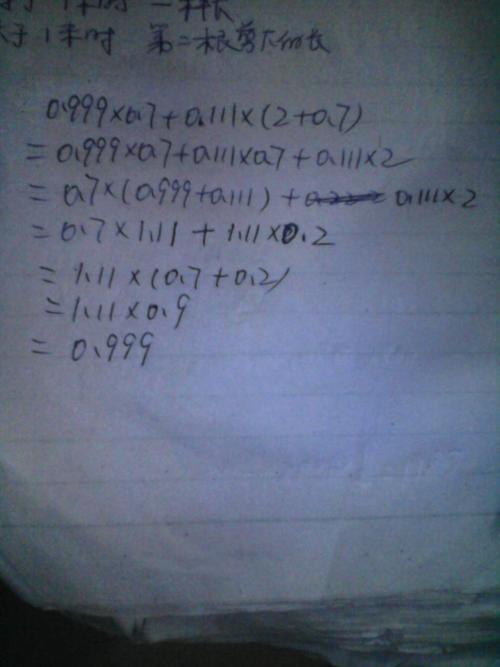 于1米时 一样长
大于1米时 第二根剪去的长
0.999×0.7+0.111×(2+0.7)
=0.999×0.7+0.111×0.7+0.111×2
=0.7×(0.999+0.111)+0.111×2
=0.7×1.11+1.11×0.2
=1.11×(0.7+0.2)
=1.11×0.9
=0.999